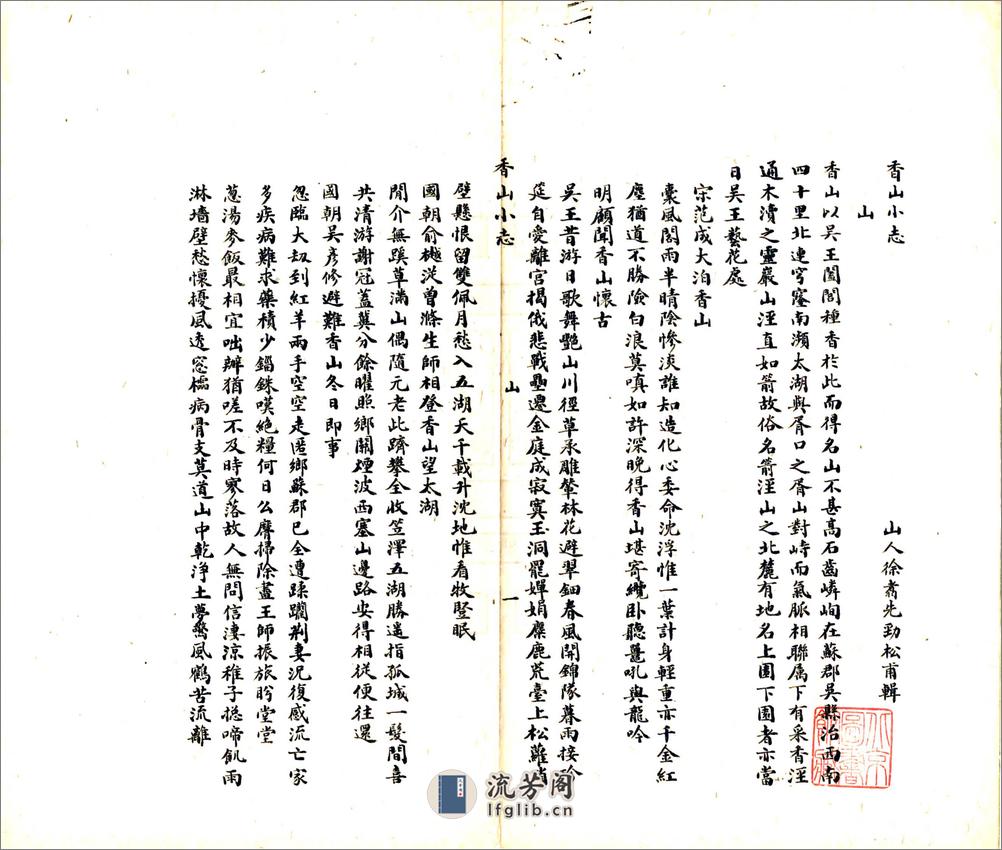 香山小志
山人徐翥先勁松甫輯
山
香山以吳王闔閭種香於此而得名山不甚高石齒嶙峋在蘇郡吳縣治西南
四十里北連穹窿南瀕太湖與胥口之胥山對峙而氣脈相聯屬下有采香涇
通木瀆之靈巖山涇直如箭故俗名箭涇山之北麓有地名上園下園者亦當
日吳王藝花處
宋范成大泊香山
囊風閣雨半晴陰慘淡誰知造化心委命沈浮惟一葉計身輕重亦千金紅
塵猶道不勝險白浪莫嗔如許深晚得香山堪寄纜卧聽鼉吼與龍吟
明顧聞香山懷古
吳王昔游日歌舞艷山川徑草承雕輦林花避翠鈿春風開錦隊暮雨接
筵自愛離宮揭俄悲戰壘遷金庭成寂寞玉洞罷嬋娟麋鹿荒臺上松蘿
香山小志
山
一
壁懸恨留雙佩月愁入五湖天千載升沈地惟看牧豎眠
國朝俞樾從曾滌生師相登香山望太湖
閒介無蹊草滿山偶隨元老此躋攀全收笠澤五湖勝遙指孤城一髮間喜
共清游謝冠蓋莫分餘曜照鄉關煙波西塞山邊路安得相從便往還
國朝吳彥修避難香山冬日即事
忽臨大劫到紅羊兩手空空走匿鄉蘇郡已全遭蹂躪荆妻況復感流亡家
多疾病難求藥積少錙銖嘆絕糧何日么麽掃除盡王師振旅盼堂堂
蔥湯麥飯最相宜咄辦猶嗟不及時寥落故人無問信淒涼稚子總啼飢雨
淋墻壁愁懷擾風透窓櫺病骨支莫道山中乾淨土夢驚風鶴苦流離
流芳阁
lfglib.cn